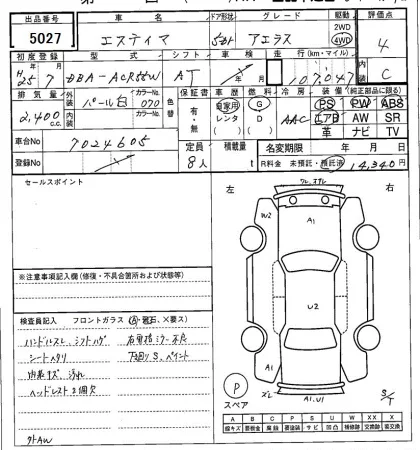 出品番号 車名 ドア形状 グレード 駆動 評価点
5027 エスティマ 5ドア アエラス 2WD 4WD 4
初度登録 型式 シフト 車検 走行(km・マイル) 内装
H25年7月 DBA-ACR55W AT 年 月 107,047 C
排気量 外装 カラーNo. 色替 保証書 車歴 燃料 冷房 装備(純正部品に限る)
2,400c.c. パール白 070 有・無 自家用 レンタ G D AAC PS PW ABS
内装 カラーNo. エアB AW SR
革 ナビ TV
車台No 7024605 定員 積載量 名変期限 年 月 日
登録No 8人 t R料金 未預託・預託済 14,340円
セールスポイント 左 右
ワレ、オサレ
W2 A1
U2
※注意事項記入欄(修復・不具合箇所および改造等)
検査員記入 フロントガラス(A・飛石、×要ス)
ハンドルスレ、シフトハゲ 右電格ミラー不良
シートヘタリ 下回りS、ペイント
内装キズ、汚れ
ヘッドレスト2個欠
外AW
A1
P スペア X2 A1,U1 S/T
A B C P S U W X XX
線キズ 要鈑金 腐蝕 要塗装 サビ 凹凸 補修跡 要交換 交換済